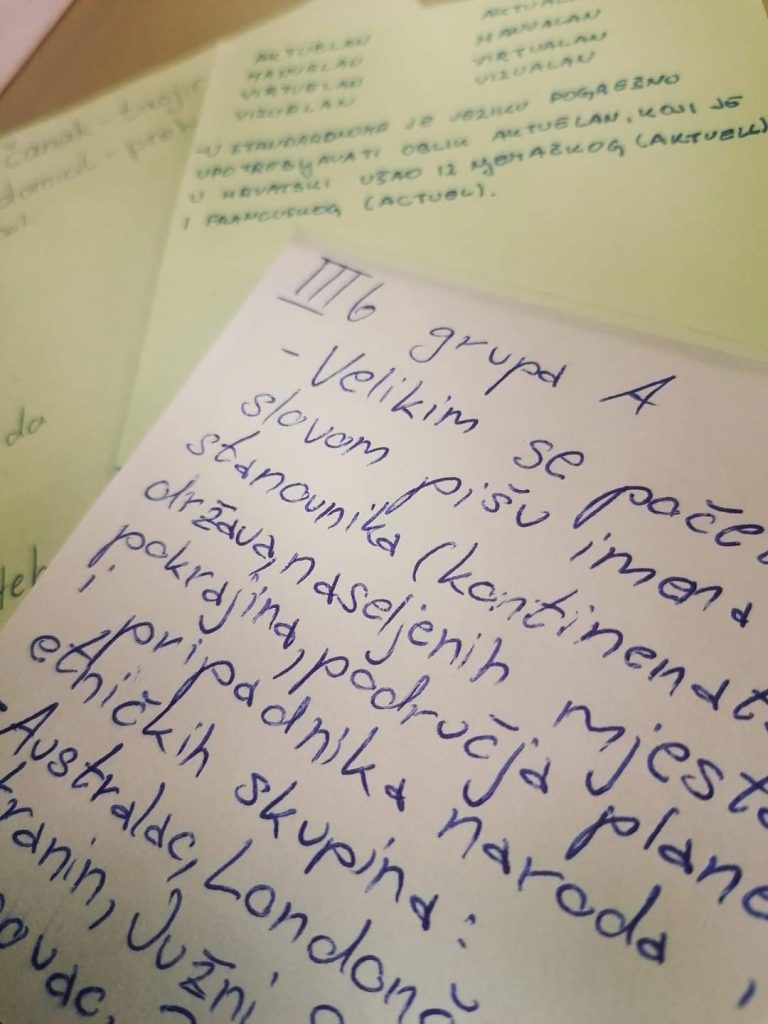 AKTUELAN
MANUALAN
VIRTUELAN
VIZUELAN
MANUALAN
VIRTUALAN
VIZUALAN
-U STANDARDNOME JE JEZIKU POGREŠNO
UPOTREBLJAVATI OBLIK AKTUELAN, KOJI JE
U HRVATSKI UŠAO IZ NJEMAČKOG (AKTUELL)
I FRANCUSKOG (ACTUEL).
čanak - tanjir
da
III b grupa A
- Velikim se
slovom pišu imena
stanovnika (kontinenata
država, naseljenih mjesta
pokrajina, područja
i pripadnika naroda i
etničkih skupina:
-Australac,
Južni